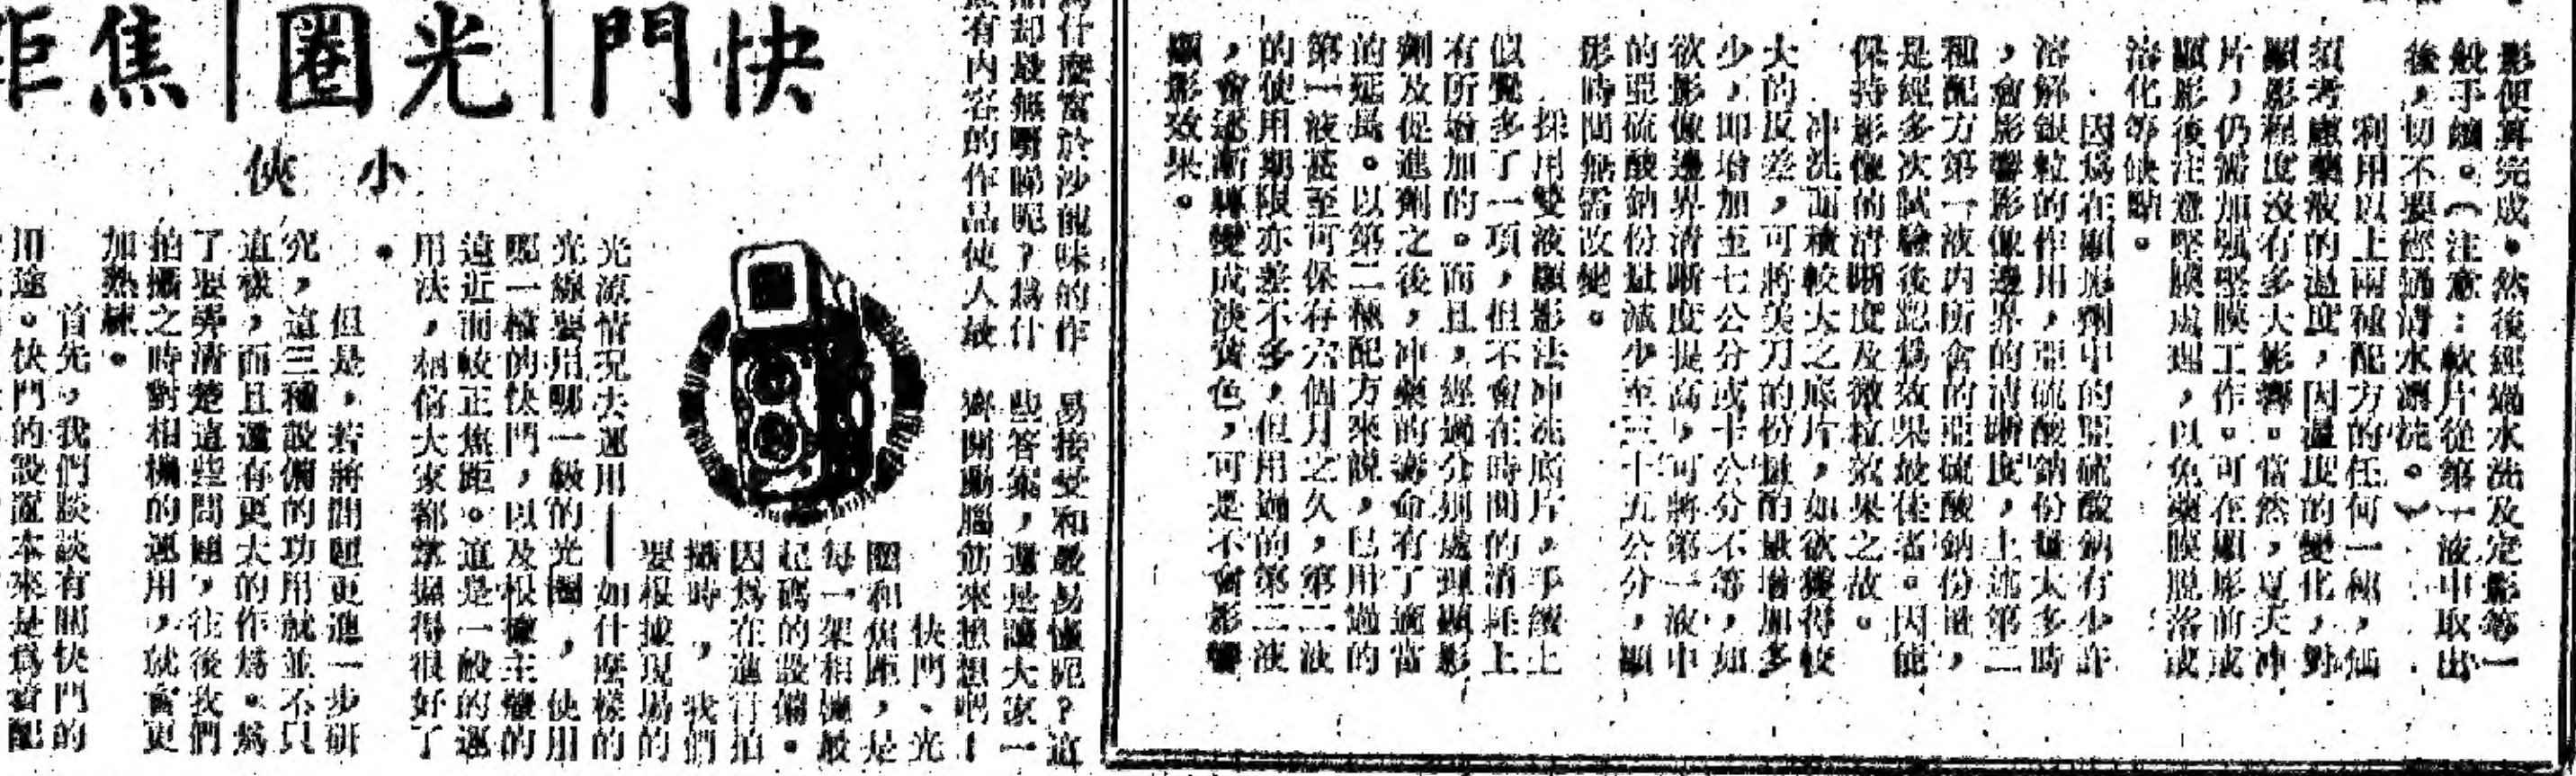 影便算完成。然後經過水洗及定影等一
般手續。（注意：軟片從第一液中取出
後，切不要經過清水漂洗。）
利用以上兩種配方的任何一種，仍
須考慮藥液的溫度，因溫度的變化，對
顯影程度沒有多大影響。當然，夏天冲
片，仍需加強堅膜工作。可在顯影前或
顯影後注意堅膜處理，以免藥膜脫落或
溶化等缺點。
因爲在顯影劑中的亞硫酸鈉有少許
溶解銀粒的作用，亞硫酸鈉份量太多時
，會影響影像邊界的清晰度，上述第二
種配方第一液內所含的亞硫酸鈉份量，
是經多次試驗後認爲效果最佳者。因能
保持影像的清晰度及微粒效果之故。
冲洗面積較大之底片，如欲獲得較
大的反差，可將美刀的份量酌量增加多
少，即增加至七公分或十公分不等，如
欲影像邊界清晰度提高，可將第一液中
的亞硫酸鈉份量減少至三十五公分，顯
影時間無需改變。
採用雙液顯影法冲洗底片，手續上
似覺多了一項，但不會在時間的消耗上
有所增加的。而且，經過分別處理顯影
劑及促進劑之後，冲藥的壽命有了適當
的延長。以第二種配方來說，已用過的
第一液甚至可保存六個月之久，第二液
的使用期限亦差不多，但用過的第二液
，會逐漸轉變成淡黃色，可是不會影響
顯影效果。
什麼富於沙龍味的作
却最無明睇呢？爲什
有內容的作品使人最
易接受和最易懂呢？這
些答案，還是讓大家一
齊開動腦筋來想想吧！
快門│光圈│焦距
小俠
快門、光
圈和焦距，是
每一架相機最
起碼的設備。
因爲在進行拍
攝時，我們
要根據現場的
光源情況去運用——如什麼樣的
光線要用哪一級的光圈，使用
哪一檔的快門，以及根據主體的
遠近而較正焦距。這是一般的運
用法，相信大家都掌握得很好了
。
但是，若將問題更進一步研
究，這三種設備的功用就並不只
這樣，而且還有更大的作爲。爲
了要弄清楚這些問題，往後我們
拍攝之時對相機的運用，就會更
加熟練。
首先，我們談談有關快門的
用途。快門的設置本來是爲着配